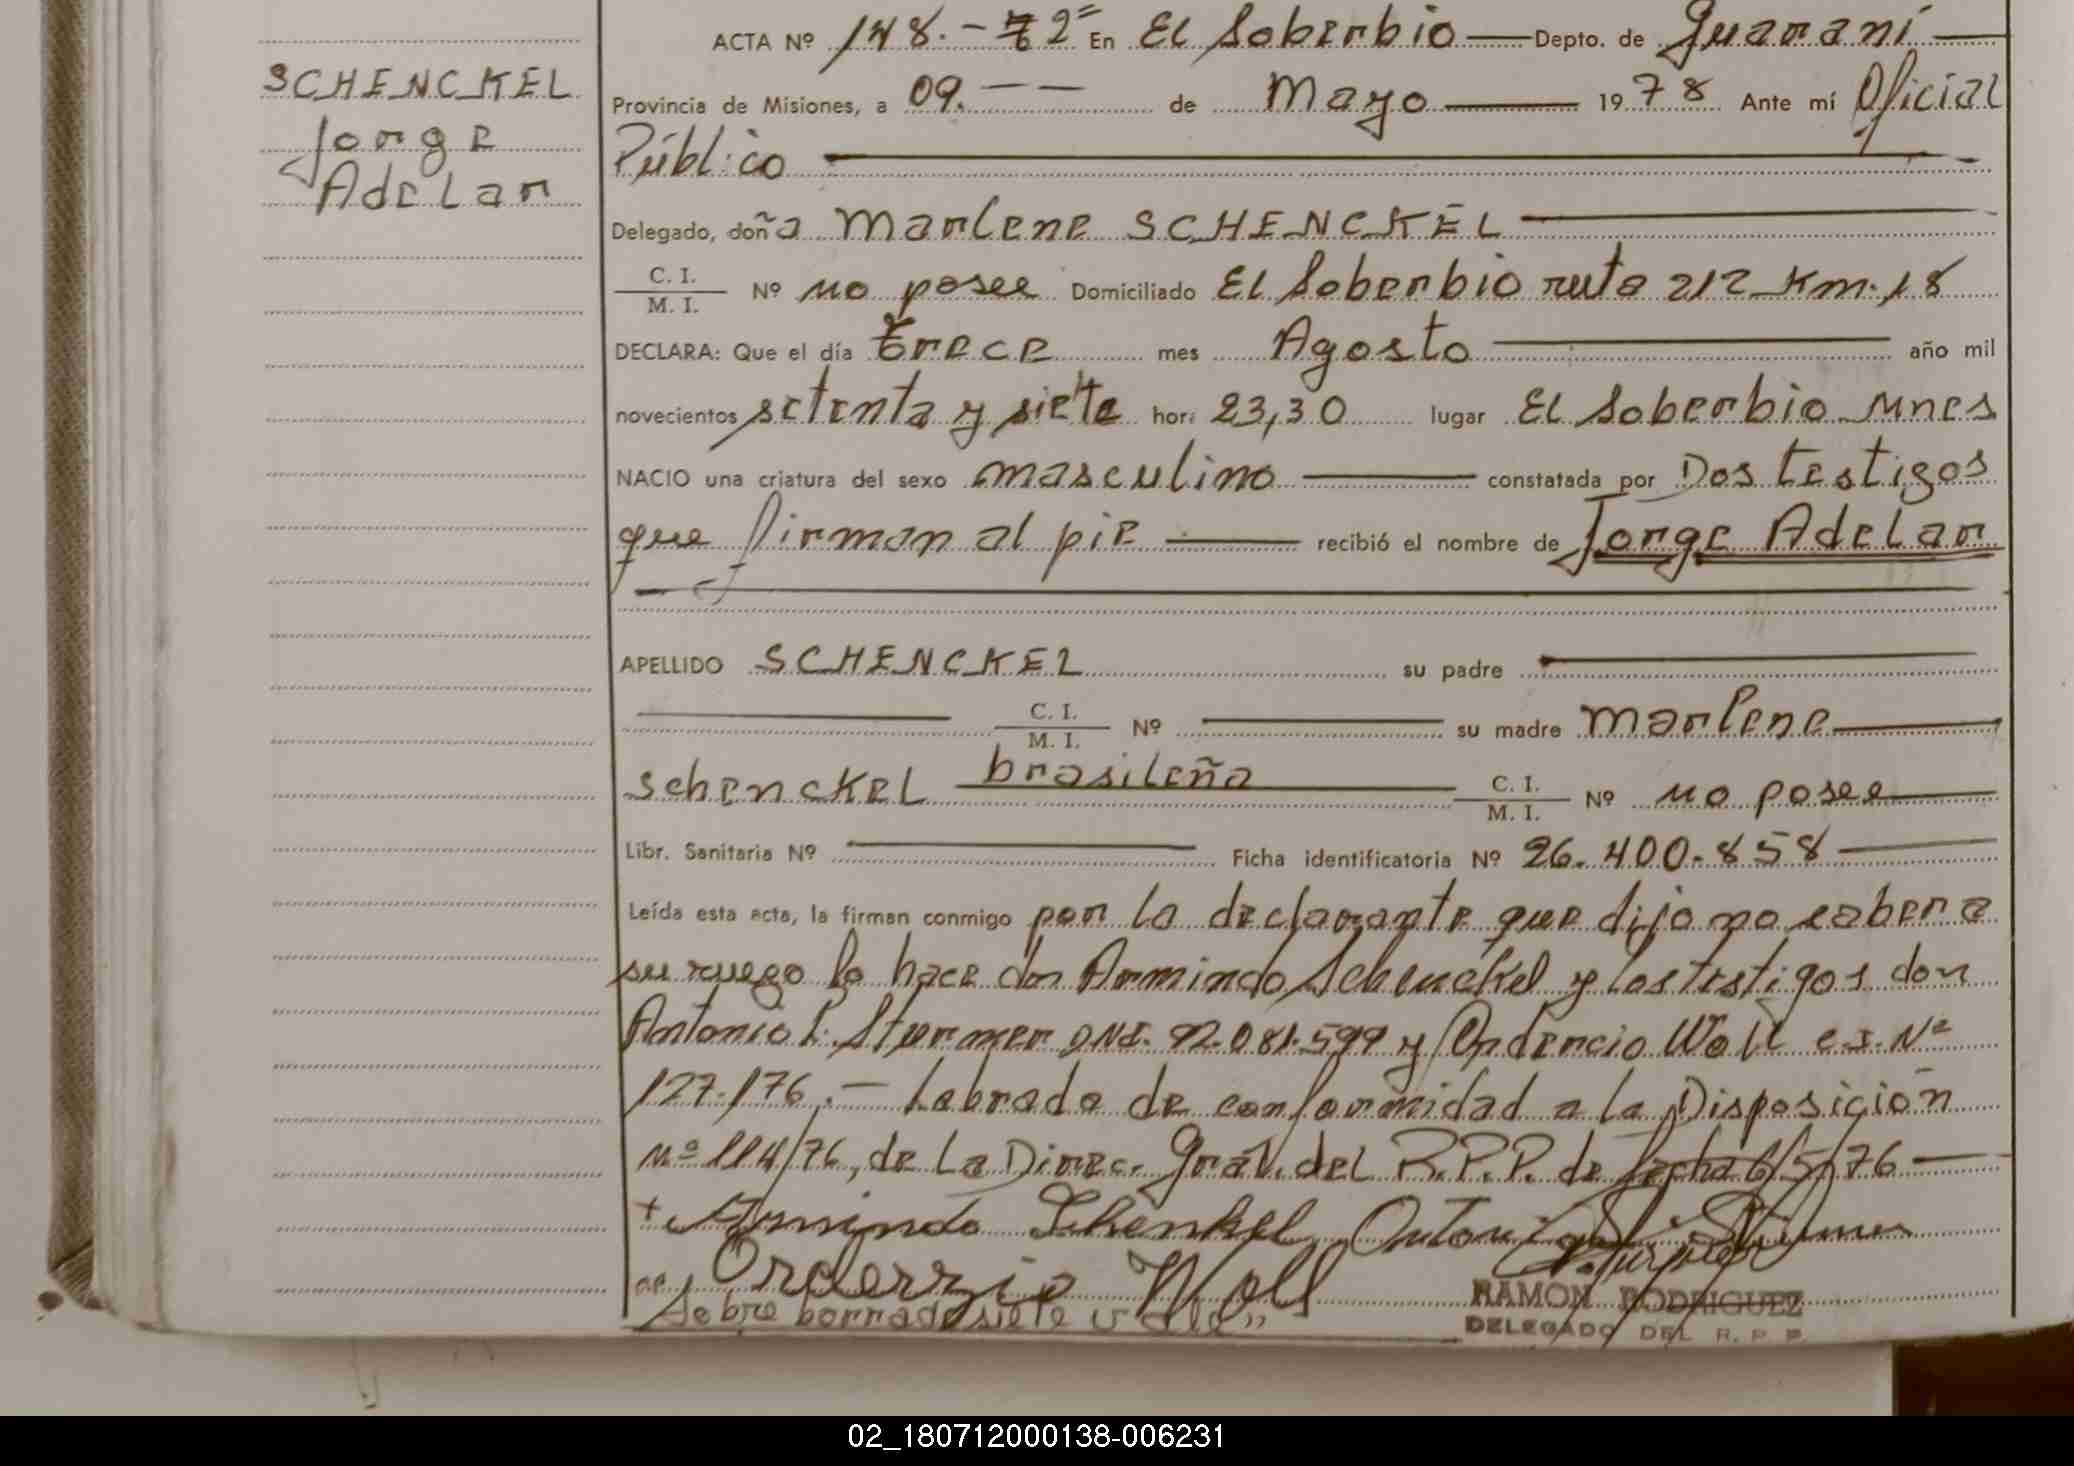 SCHENCKEL
Jorge
Adelar
ACTA Nº 148.- Tº 2º En El Soberbio Depto. de Guaraní
Provincia de Misiones, a 09. de Mayo 1978 Ante mí Oficial
Público
Delegado, doña Marlene SCHENCKEL
C. I.
M. I. Nº no posee Domiciliado El Soberbio ruta 212 Km. 18
DECLARA: Que el día trece mes Agosto año mil
novecientos setenta y siete hora 23,30 lugar El Soberbio Mnes
NACIO una criatura del sexo masculino constatada por Dos testigos
que firman al pie recibió el nombre de Jorge Adelar
APELLIDO SCHENCKEL su padre
C. I.
M. I. Nº su madre Marlene
Schenckel brasileña C. I.
M. I. Nº no posee
Libr. Sanitaria Nº Ficha identificatoria Nº 26.400.858
Leída esta acta, la firman conmigo por la declarante que dijo no saber a
su ruego lo hace don Armindo Schenckel y los testigos don
Antonio L. Sturmer DNI. 92.081.599 y Ordercio Woll c.I. Nº
127.176.- Labrada de conformidad a la Disposición
Nº 114/76, de La Direc. Gral. del R.P.P. de fecha 6/5/76
+ Armindo Schenkel Antonio Stürmer
Orderzio Woll
Sobre borrado siete "Vale"
RAMON RODRIGUEZ
DELEGADO DEL R. P. P.
02_180712000138-006231